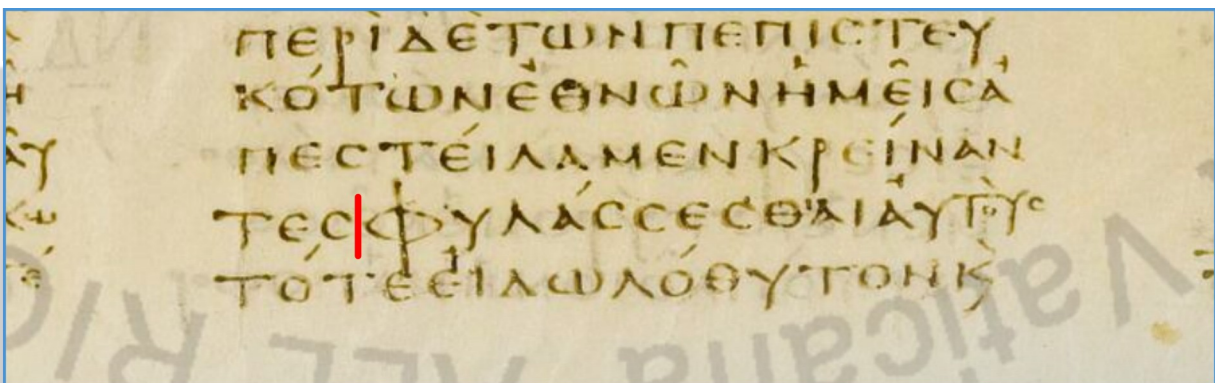 ΠΕΡΙΔΕΤΩΝΠΕΠΙϹΤΕΥ
ΚΟΤΩΝΕΘΝΩΝΗΜΕΙϹΑ
ΠΕϹΤΕΙΛΑΜΕΝΚΡΕΙΝΑΝ
ΤΕϹΦΥΛΑϹϹΕϹΘΑΙΑΥΤΟΥϹ
ΤΟΤΕΕΙΔΩΛΟΘΥΤΟΝΚ